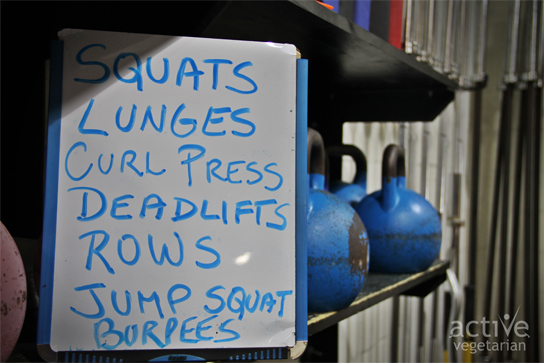 SQUATS
LUNGES
CURL PRESS
DEADLIFTS
ROWS
JUMP SQUAT
BURPEES
active
vegetarian